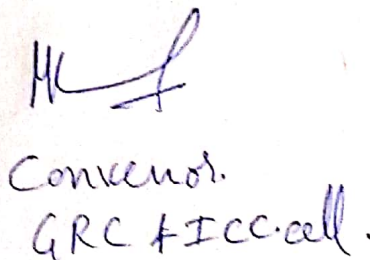 Convenor.
GRC & ICC.cell.